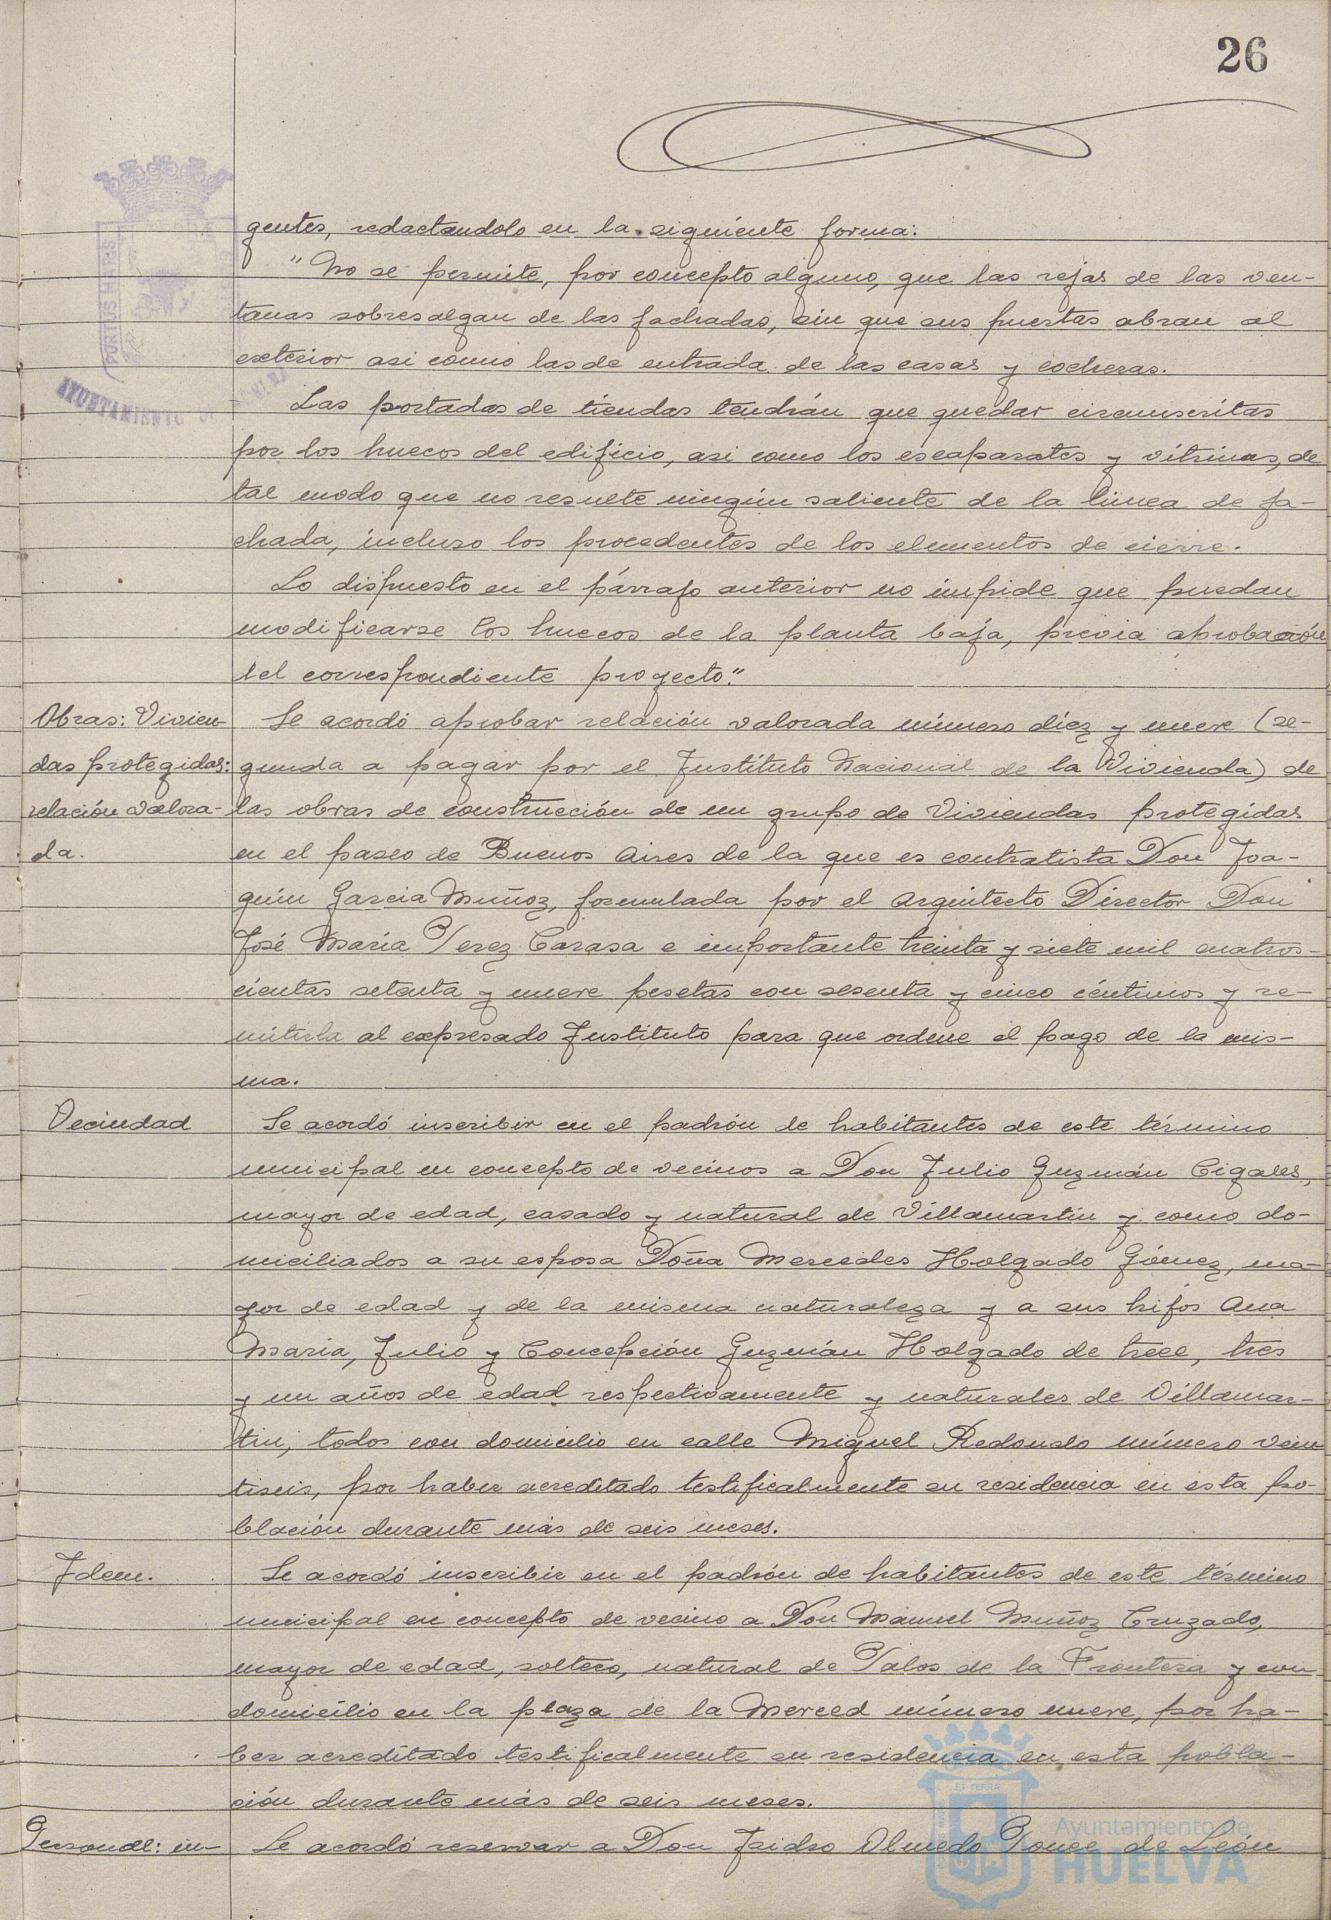 26
PORTUS MARIS
AYUNTAMIENTO DE HUELVA
gentes, redactandolo en la siguiente forma:
"No se permite, por concepto alguno, que las rejas de las ven-
tanas sobresalgan de las fachadas, sin que sus puertas abran al
exterior asi como las de entrada de las casas y cocheras.
Las portadas de tiendas tendrán que quedar circunscritas
por los huecos del edificio, asi como los escaparates y vitrinas, de
tal modo que no resulte ningún saliente de la linea de fa-
chada, incluso los procedentes de los elementos de cierre.
Lo dispuesto en el párrafo anterior no impide que puedan
modificarse los huecos de la planta baja, previa aprobación
del correspondiente proyecto."
Obras: Vivien-
das protegidas:
relación valora-
da.
Se acordó aprobar relación valorada número diez y nueve (se-
gunda a pagar por el Instituto Nacional de la Vivienda) de
las obras de construcción de un grupo de Viviendas protegidas
en el paseo de Buenos Aires de la que es contratista Don Joa-
quin Garcia Muñoz, formulada por el Arquitecto Director Don
José Maria Perez Carasa e importante treinta y siete mil cuatros-
cientas setenta y nueve pesetas con sesenta y cinco céntimos y re-
mitirla al expresado Instituto para que ordene el pago de la mis-
ma.
Vecindad
Se acordó inscribir en el padrón de habitantes de este término
municipal en concepto de vecinos a Don Julio Guzmán Cigales,
mayor de edad, casado y natural de Villamartin y como do-
miciliados a su esposa Doña Mercedes Holgado Gómez, ma-
yor de edad y de la misma naturaleza y a sus hijos Ana
Maria, Julio y Concepción Guzmán Holgado de trece, tres
y un años de edad respectivamente y naturales de Villamar-
tin, todos con domicilio en calle Miguel Redondo número vein
tiseis, por haber acreditado testificalmente su residencia en esta po-
blación durante más de seis meses.
Idem.
Se acordó inscribir en el padrón de habitantes de este término
municipal en concepto de vecino a Don Manuel Muñoz Cruzado,
mayor de edad, soltero, natural de Palos de la Frontera y con
domicilio en la plaza de la Merced número nueve, por ha-
ber acreditado testificalmente su residencia en esta pobla-
ción durante más de seis meses.
Personal: in-
Se acordó reservar a Don Isidro Olmedo Ponce de León
ET TERRA
Ayuntamiento de
HUELVA